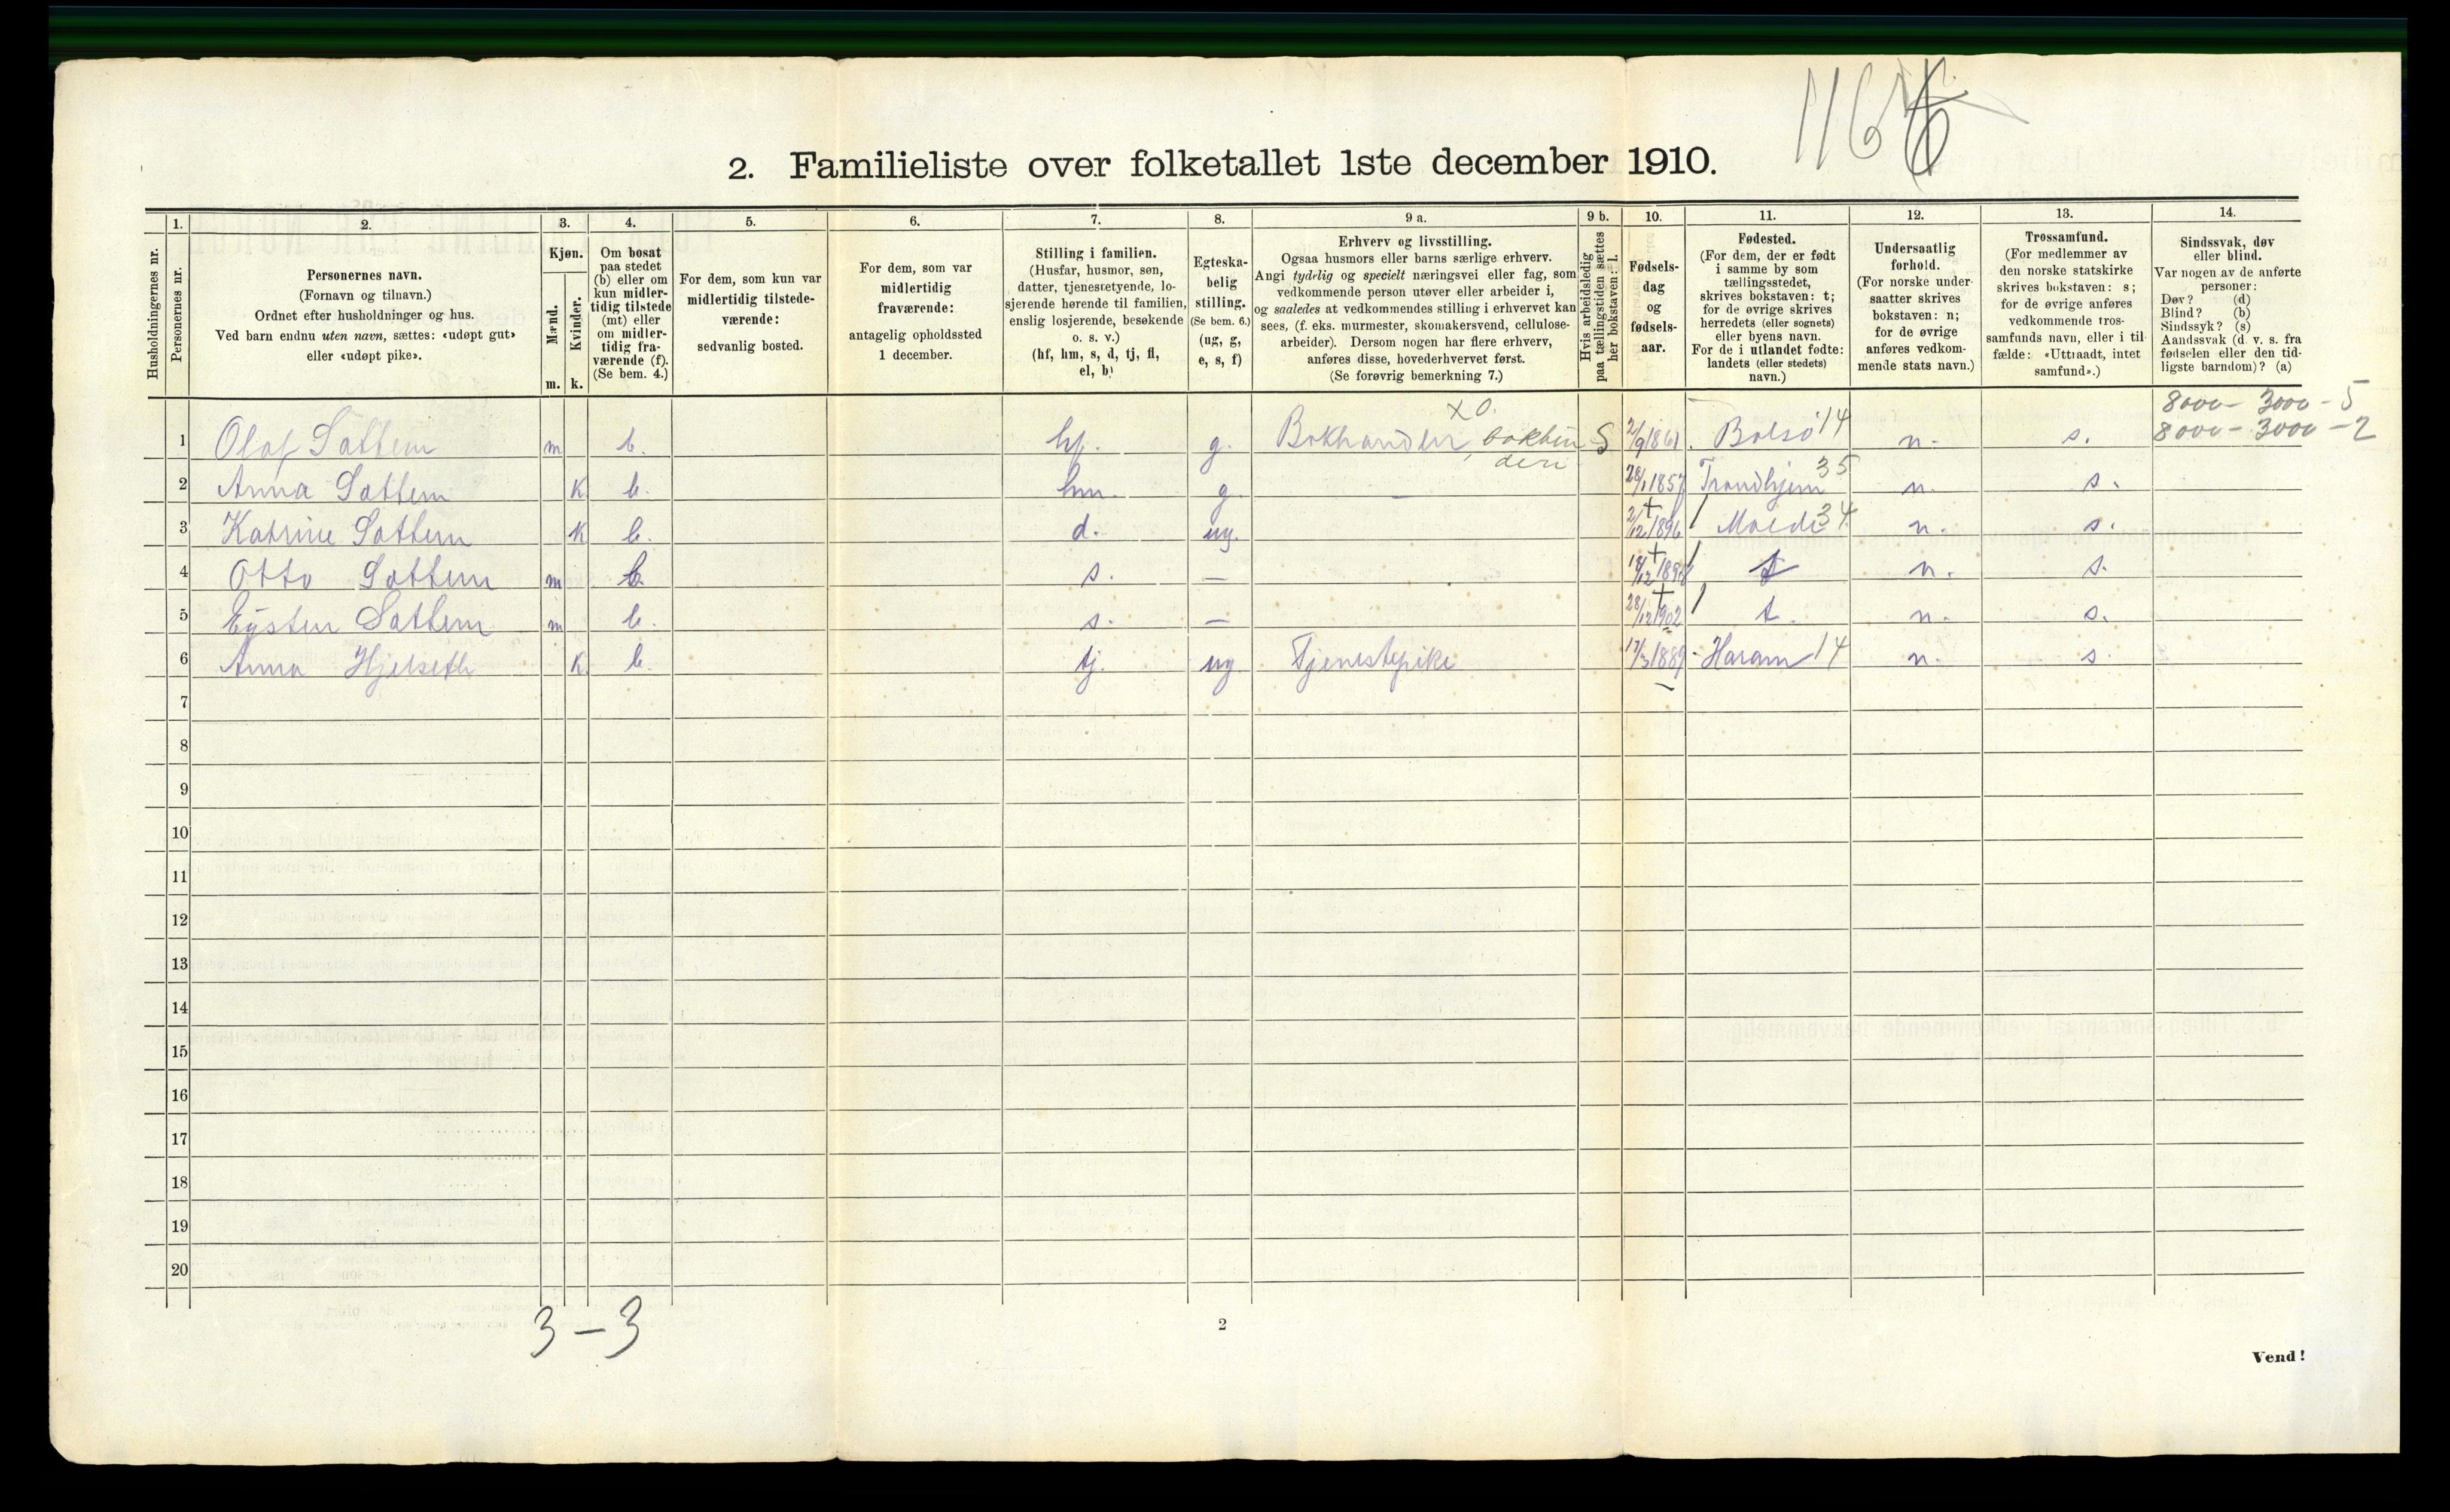 116
2. Familieliste over folketallet 1ste december 1910.
Husholdningernes nr.
1. Personernes nr.
2. Personernes navn.
(Fornavn og tilnavn.)
Ordnet efter husholdninger og hus.
Ved barn endnu uten navn, sættes: «udøpt gut»
eller «udøpt pike».
3. Kjøn.
Mænd. m.
Kvinder. k.
4. Om bosat
paa stedet
(b) eller om
kun midler-
tidig tilstede
(mt) eller
om midler-
tidig fra-
værende (f).
(Se bem. 4.)
5. For dem, som kun var
midlertidig tilstede-
værende:
sedvanlig bosted.
6. For dem, som var
midlertidig
fraværende:
antagelig opholdssted
1 december.
7. Stilling i familien.
(Husfar, husmor, søn,
datter, tjenestetyende, lo-
sjerende hørende til familien,
enslig losjerende, besøkende
o. s. v.)
(hf, hm, s, d, tj, fl,
el, b)
8. Egteska-
belig
stilling.
(Se bem. 6.)
(ug, g,
e, s, f)
9 a. Erhverv og livsstilling.
Ogsaa husmors eller barns særlige erhverv.
Angi tydelig og specielt næringsvei eller fag, som
vedkommende person utøver eller arbeider i,
og saaledes at vedkommendes stilling i erhvervet kan
sees, (f. eks. murmester, skomakersvend, cellulose-
arbeider). Dersom nogen har flere erhverv,
anføres disse, hovederhvervet først.
(Se forøvrig bemerkning 7.)
9 b. Hvis arbeidsledig
paa tællingstiden sættes
her bokstaven: l.
10. Fødsels-
dag
og
fødsels-
aar.
11. Fødested.
(For dem, der er født
i samme by som
tællingsstedet,
skrives bokstaven: t;
for de øvrige skrives
herredets (eller sognets)
eller byens navn.
For de i utlandet fødte:
landets (eller stedets)
navn.)
12. Undersaatlig
forhold.
(For norske under-
saatter skrives
bokstaven: n;
for de øvrige
anføres vedkom-
mende stats navn.)
13. Trossamfund.
(For medlemmer av
den norske statskirke
skrives bokstaven: s;
for de øvrige anføres
vedkommende tros-
samfunds navn, eller i til-
fælde: «Uttraadt, intet
samfund».)
14. Sindssvak, døv
eller blind.
Var nogen av de anførte
personer:
Døv? (d)
Blind? (b)
Sindssyk? (s)
Aandssvak (d. v. s. fra
fødselen eller den tid-
ligste barndom)? (a)
8000 - 3000 - 5
8000 - 3000 - 2
x 0.
1 Olaf Sattem m b. hf. g. Bokhandler, bokbin S 2/9 1861 Bolsø 14 n. s.
deri
2 Anna Sattem k b. hm. g. — 28/1 1857 Trondhjem 35 n. s.
3 Katrine Sattem k b. d. ug. 2/12 1896 Molde 34 n. s.
4 Otto Sattem m b. s. — t n. s.
5 Eysten Sattem m b. s. — 28/12 1902 t. n. s.
6 Anna Hjelseth k. b. tj. ug. Tjenestepike 17/3 1889 Haram 14 n. s.
7
8
9
10
11
12
13
14
15
16
17
18
19
20
3 – 3
2
Vend!